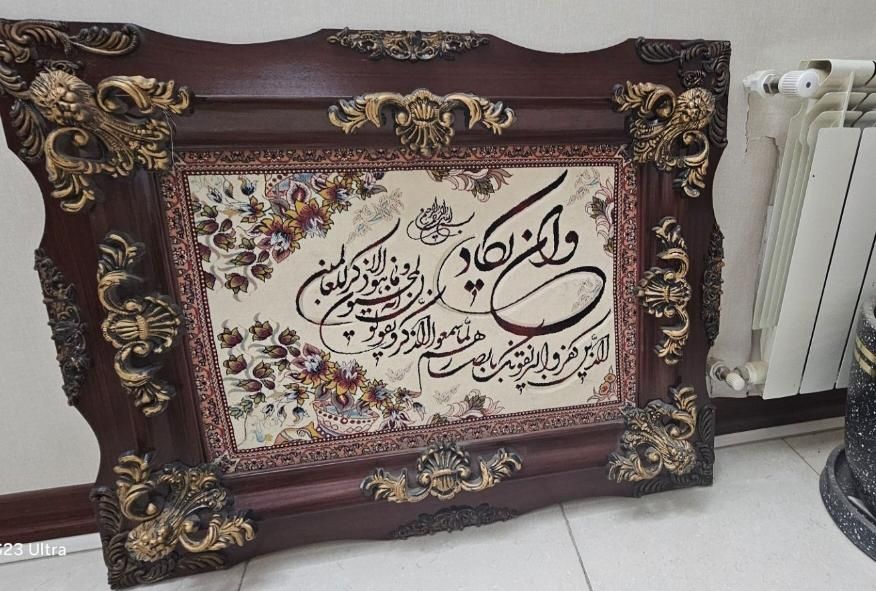 بسم الله الرحمن الرحیم
وان یکاد
الذین کفروا لیزلقونک بابصارهم لما سمعوا الذکر و یقولون
انه لمجنون
و ما هو الا ذکر للعالمین
G23 Ultra